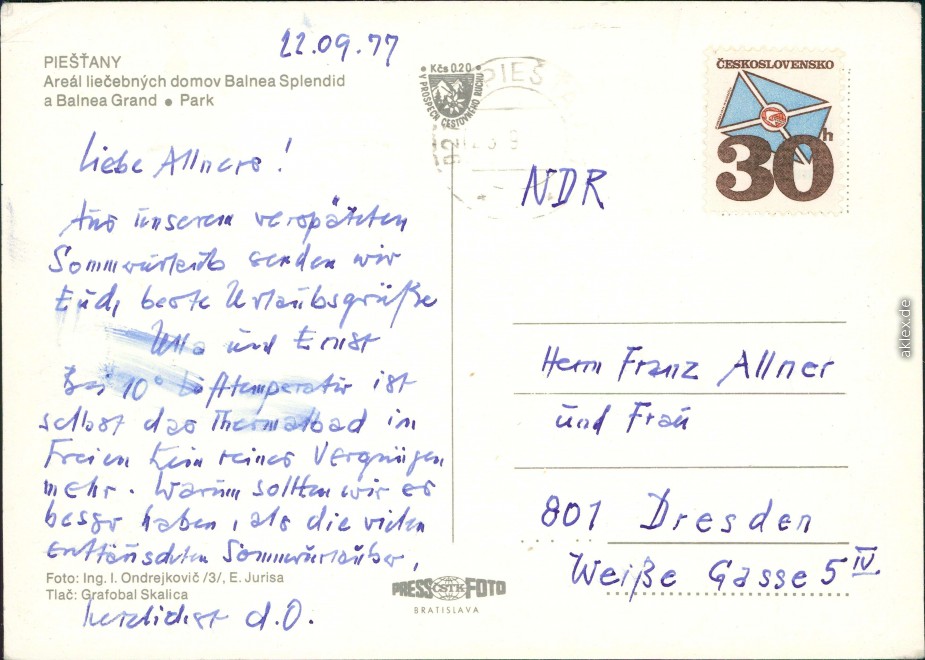 22.09.77
PIEŠŤANY
Areál liečebných domov Balnea Splendid
a Balnea Grand • Park
Kčs 0.20
V PROSPECH CESTOVNÉHO RUCHU
PIEŠ
ČESKOSLOVENSKO
30h
Liebe Allners!
Aus unserem verspäteten
Sommerurlaub senden wir
Euch beste Urlaubsgrüße
Ulla und Ernst
Bei 10° Lufttemperatur ist
selbst das Thermalbad im
Freien kein reines Vergnügen
mehr. Warum sollten wir es
besser haben, als die vielen
enttäuschten Sommerurlauber,
herzlichst d.O.
Foto: Ing. I. Ondrejkovič /3/, E. Jurisa
Tlač: Grafobal Skalica
PRESSFOTO
ČSTK
BRATISLAVA
NDR
Herrn Franz Allner
und Frau
801 Dresden
Weiße Gasse 5 IV.
aklex.de